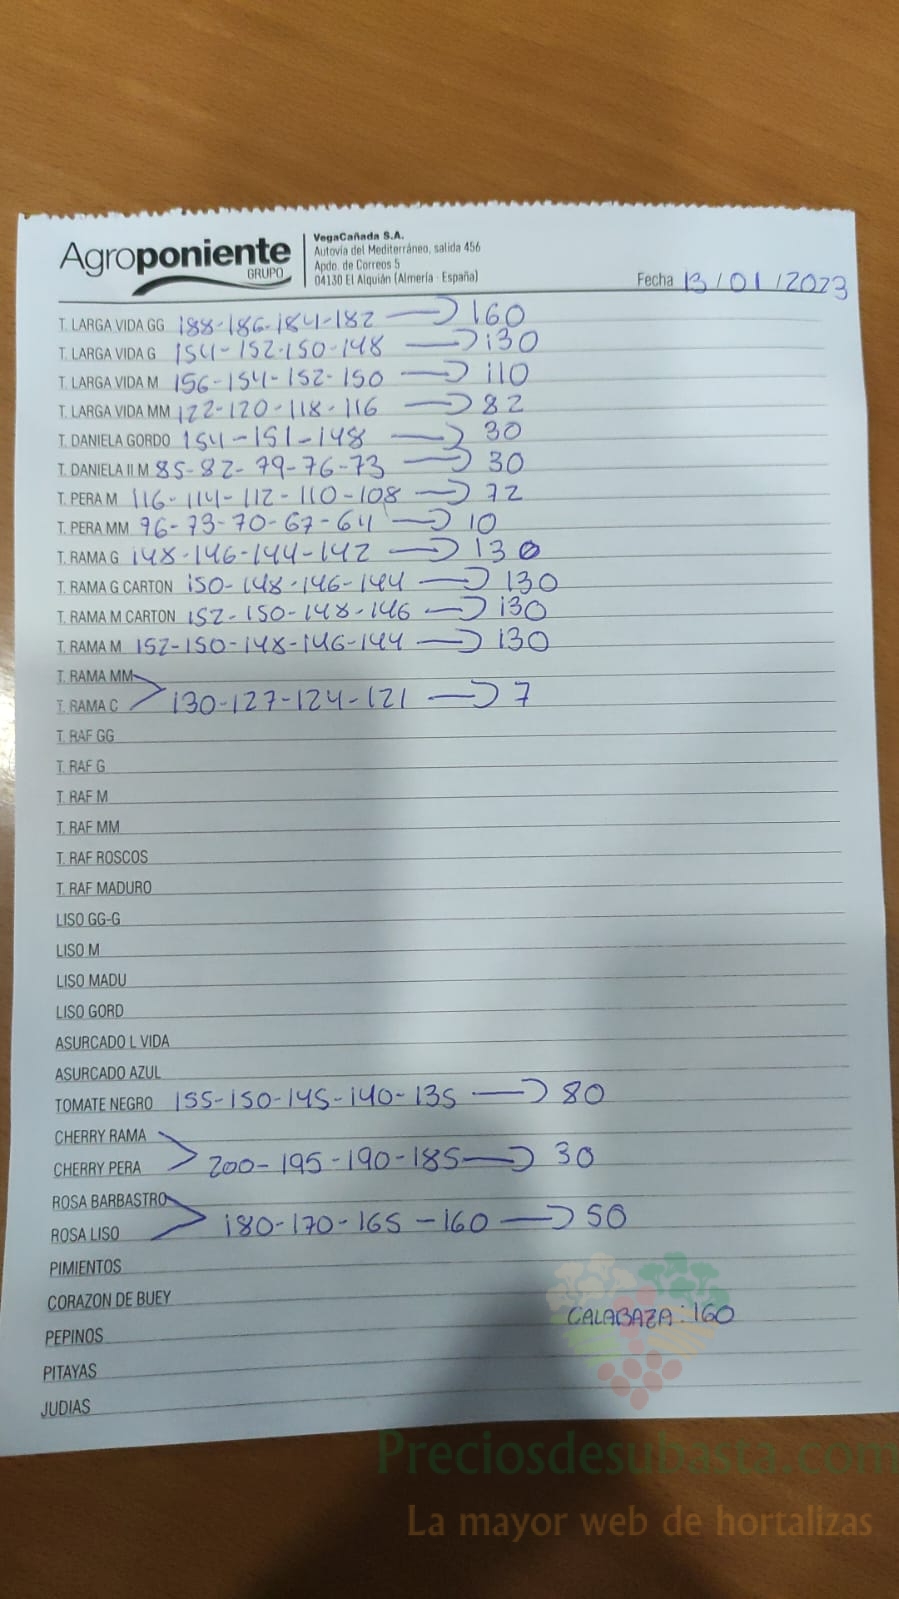 Agroponiente
GRUPO
VegaCañada S.A.
Autovía del Mediterráneo, salida 456
Apdo. de Correos 5
04130 El Alquián (Almería - España)
Fecha 13/01/2023
T. LARGA VIDA GG 188-186-184-182 → 160
T. LARGA VIDA G 154-152-150-148 → 130
T. LARGA VIDA M 156-154-152-150 → 110
T. LARGA VIDA MM 122-120-118-116 → 82
T. DANIELA GORDO 154-151-148 → 30
T. DANIELA II M 85-82-79-76-73 → 30
T. PERA M 116-114-112-110-108 → 72
T. PERA MM 96-73-70-67-64 → 10
T. RAMA G 148-146-144-142 → 130
T. RAMA G CARTON 150-148-146-144 → 130
T. RAMA M CARTON 152-150-148-146 → 130
T. RAMA M 152-150-148-146-144 → 130
T. RAMA MM
T. RAMA C 130-127-124-121 → 7
T. RAF GG
T. RAF G
T. RAF M
T. RAF MM
T. RAF ROSCOS
T. RAF MADURO
LISO GG-G
LISO M
LISO MADU
LISO GORD
ASURCADO L VIDA
ASURCADO AZUL
TOMATE NEGRO 155-150-145-140-135 → 80
CHERRY RAMA
CHERRY PERA 200-195-190-185 → 30
ROSA BARBASTRO
ROSA LISO 180-170-165-160 → 50
PIMIENTOS
CORAZON DE BUEY
CALABAZA: 160
PEPINOS
PITAYAS
JUDIAS
Preciosdesubasta.com
La mayor web de hortalizas